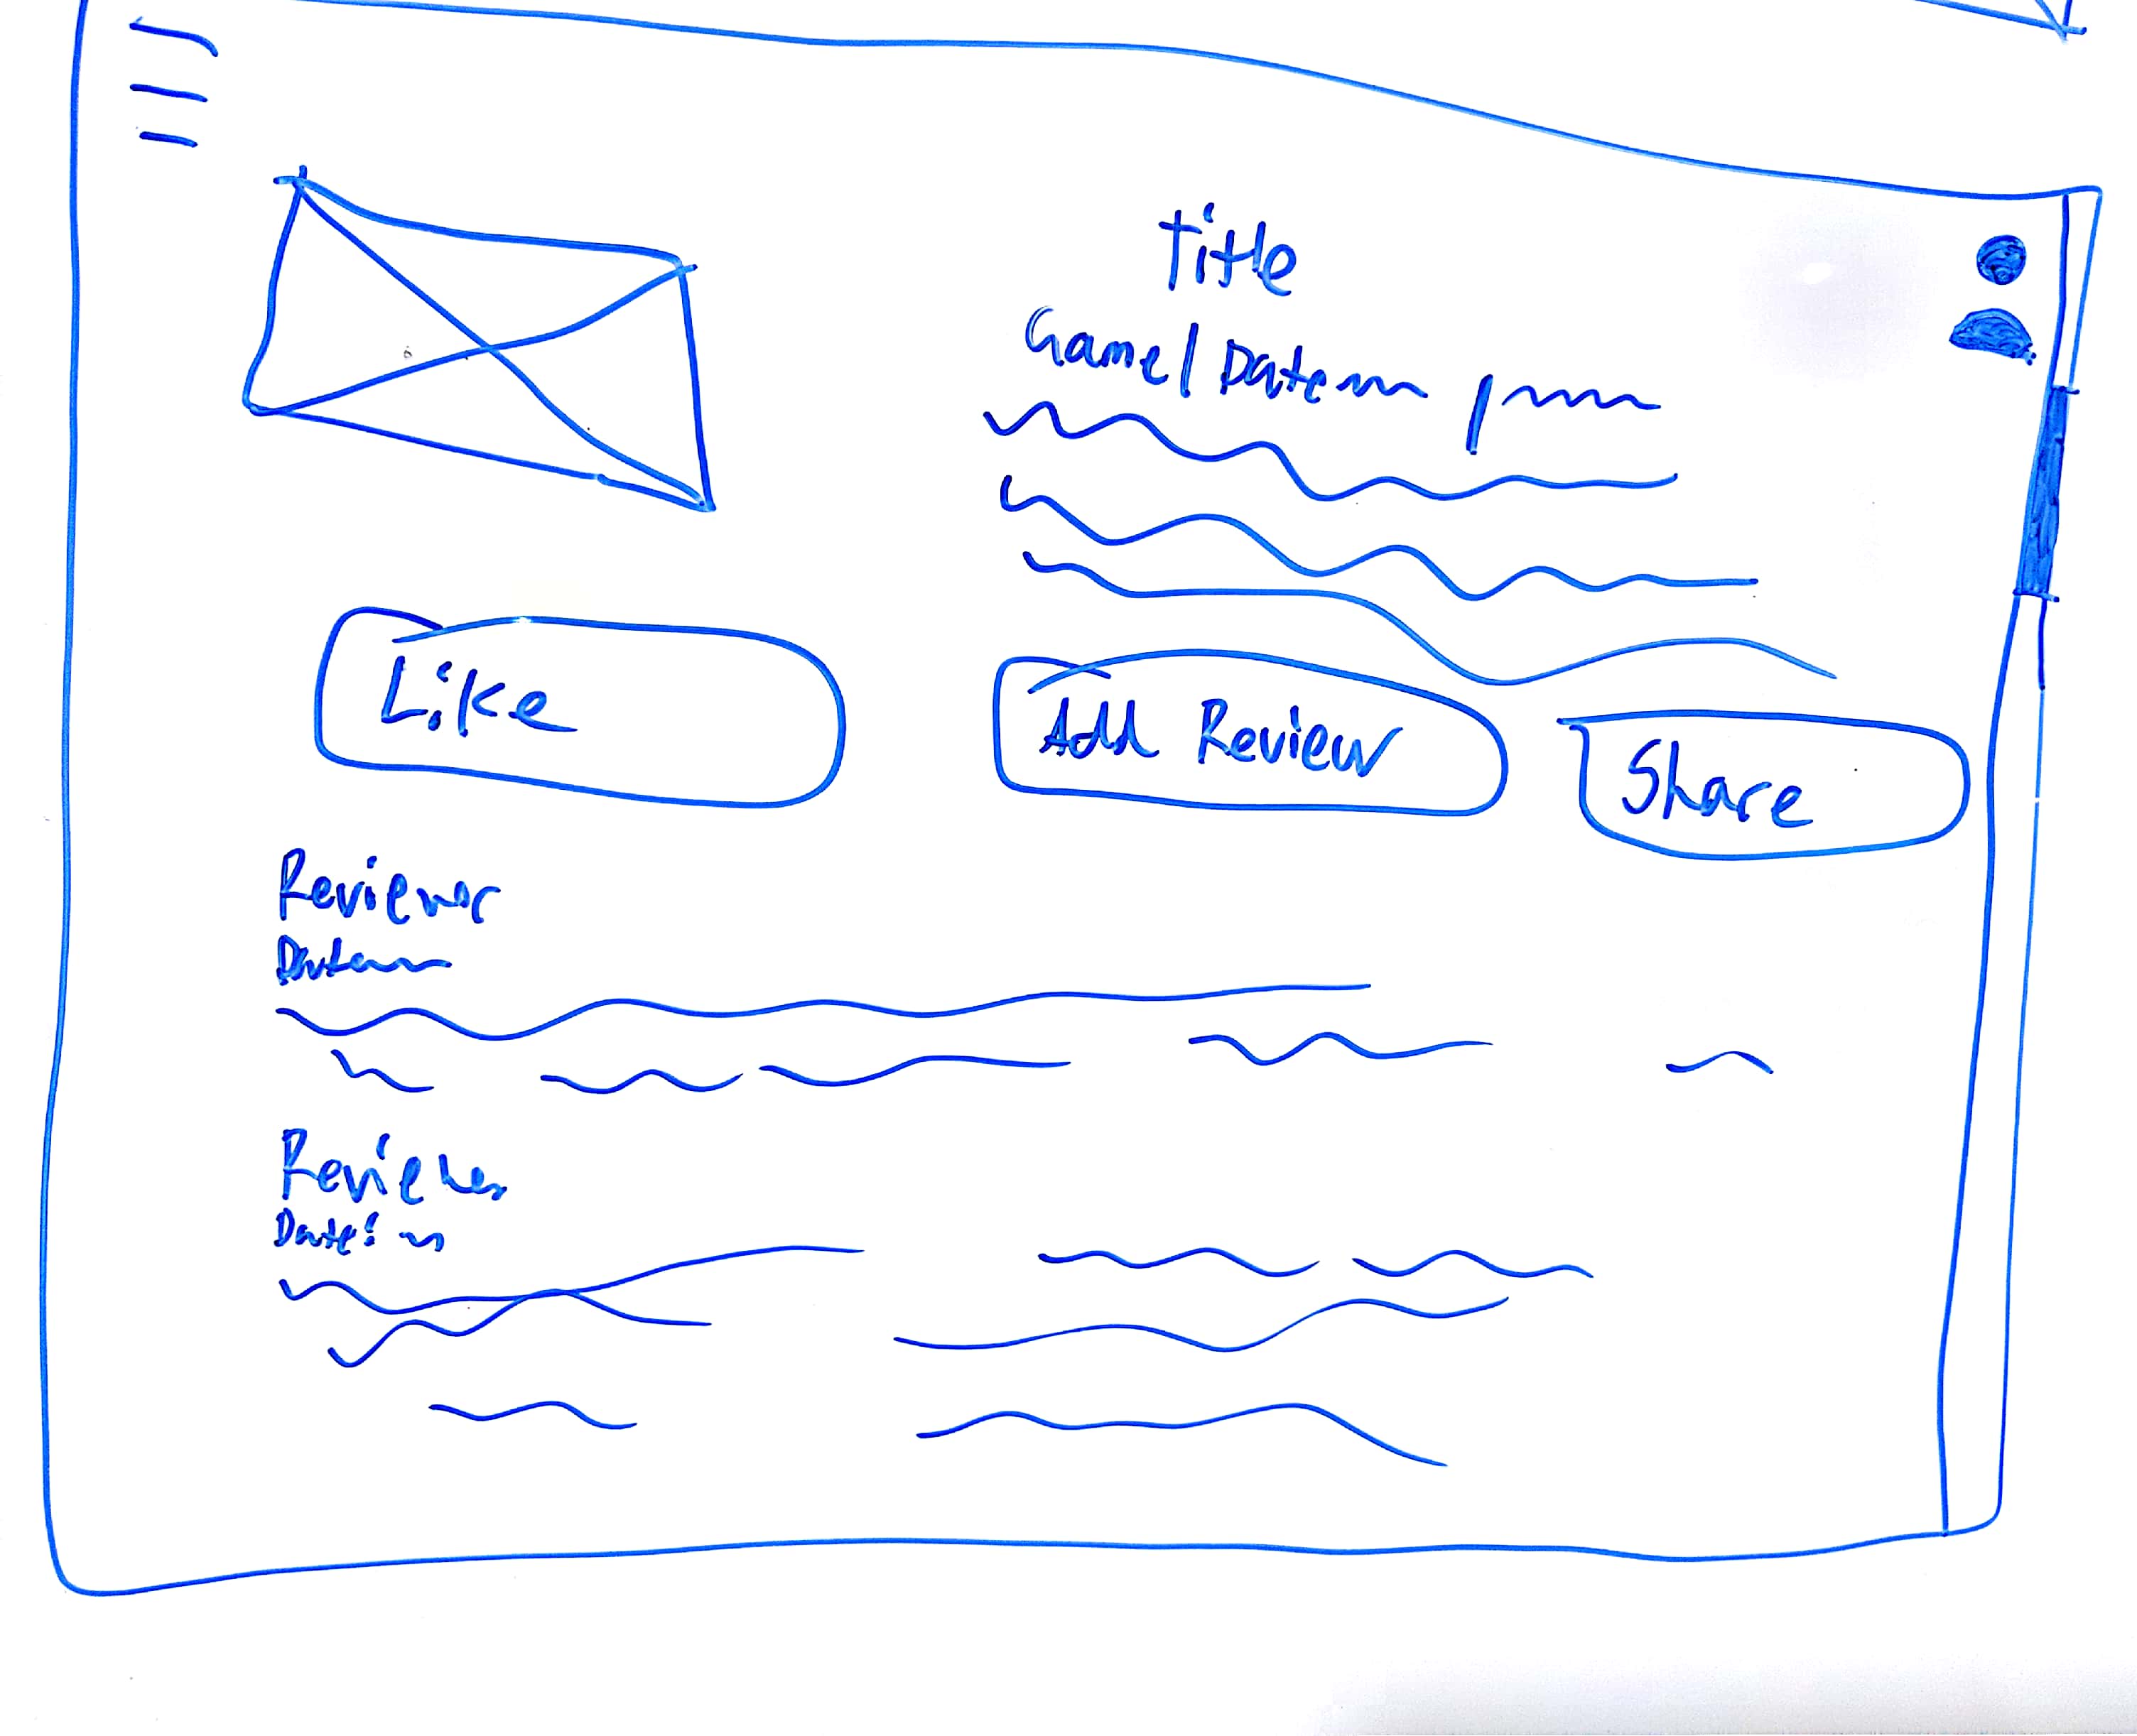 Title
Game | Date |
Like
Add Review
Share
Reviewer
Date
Reviewer
Date: